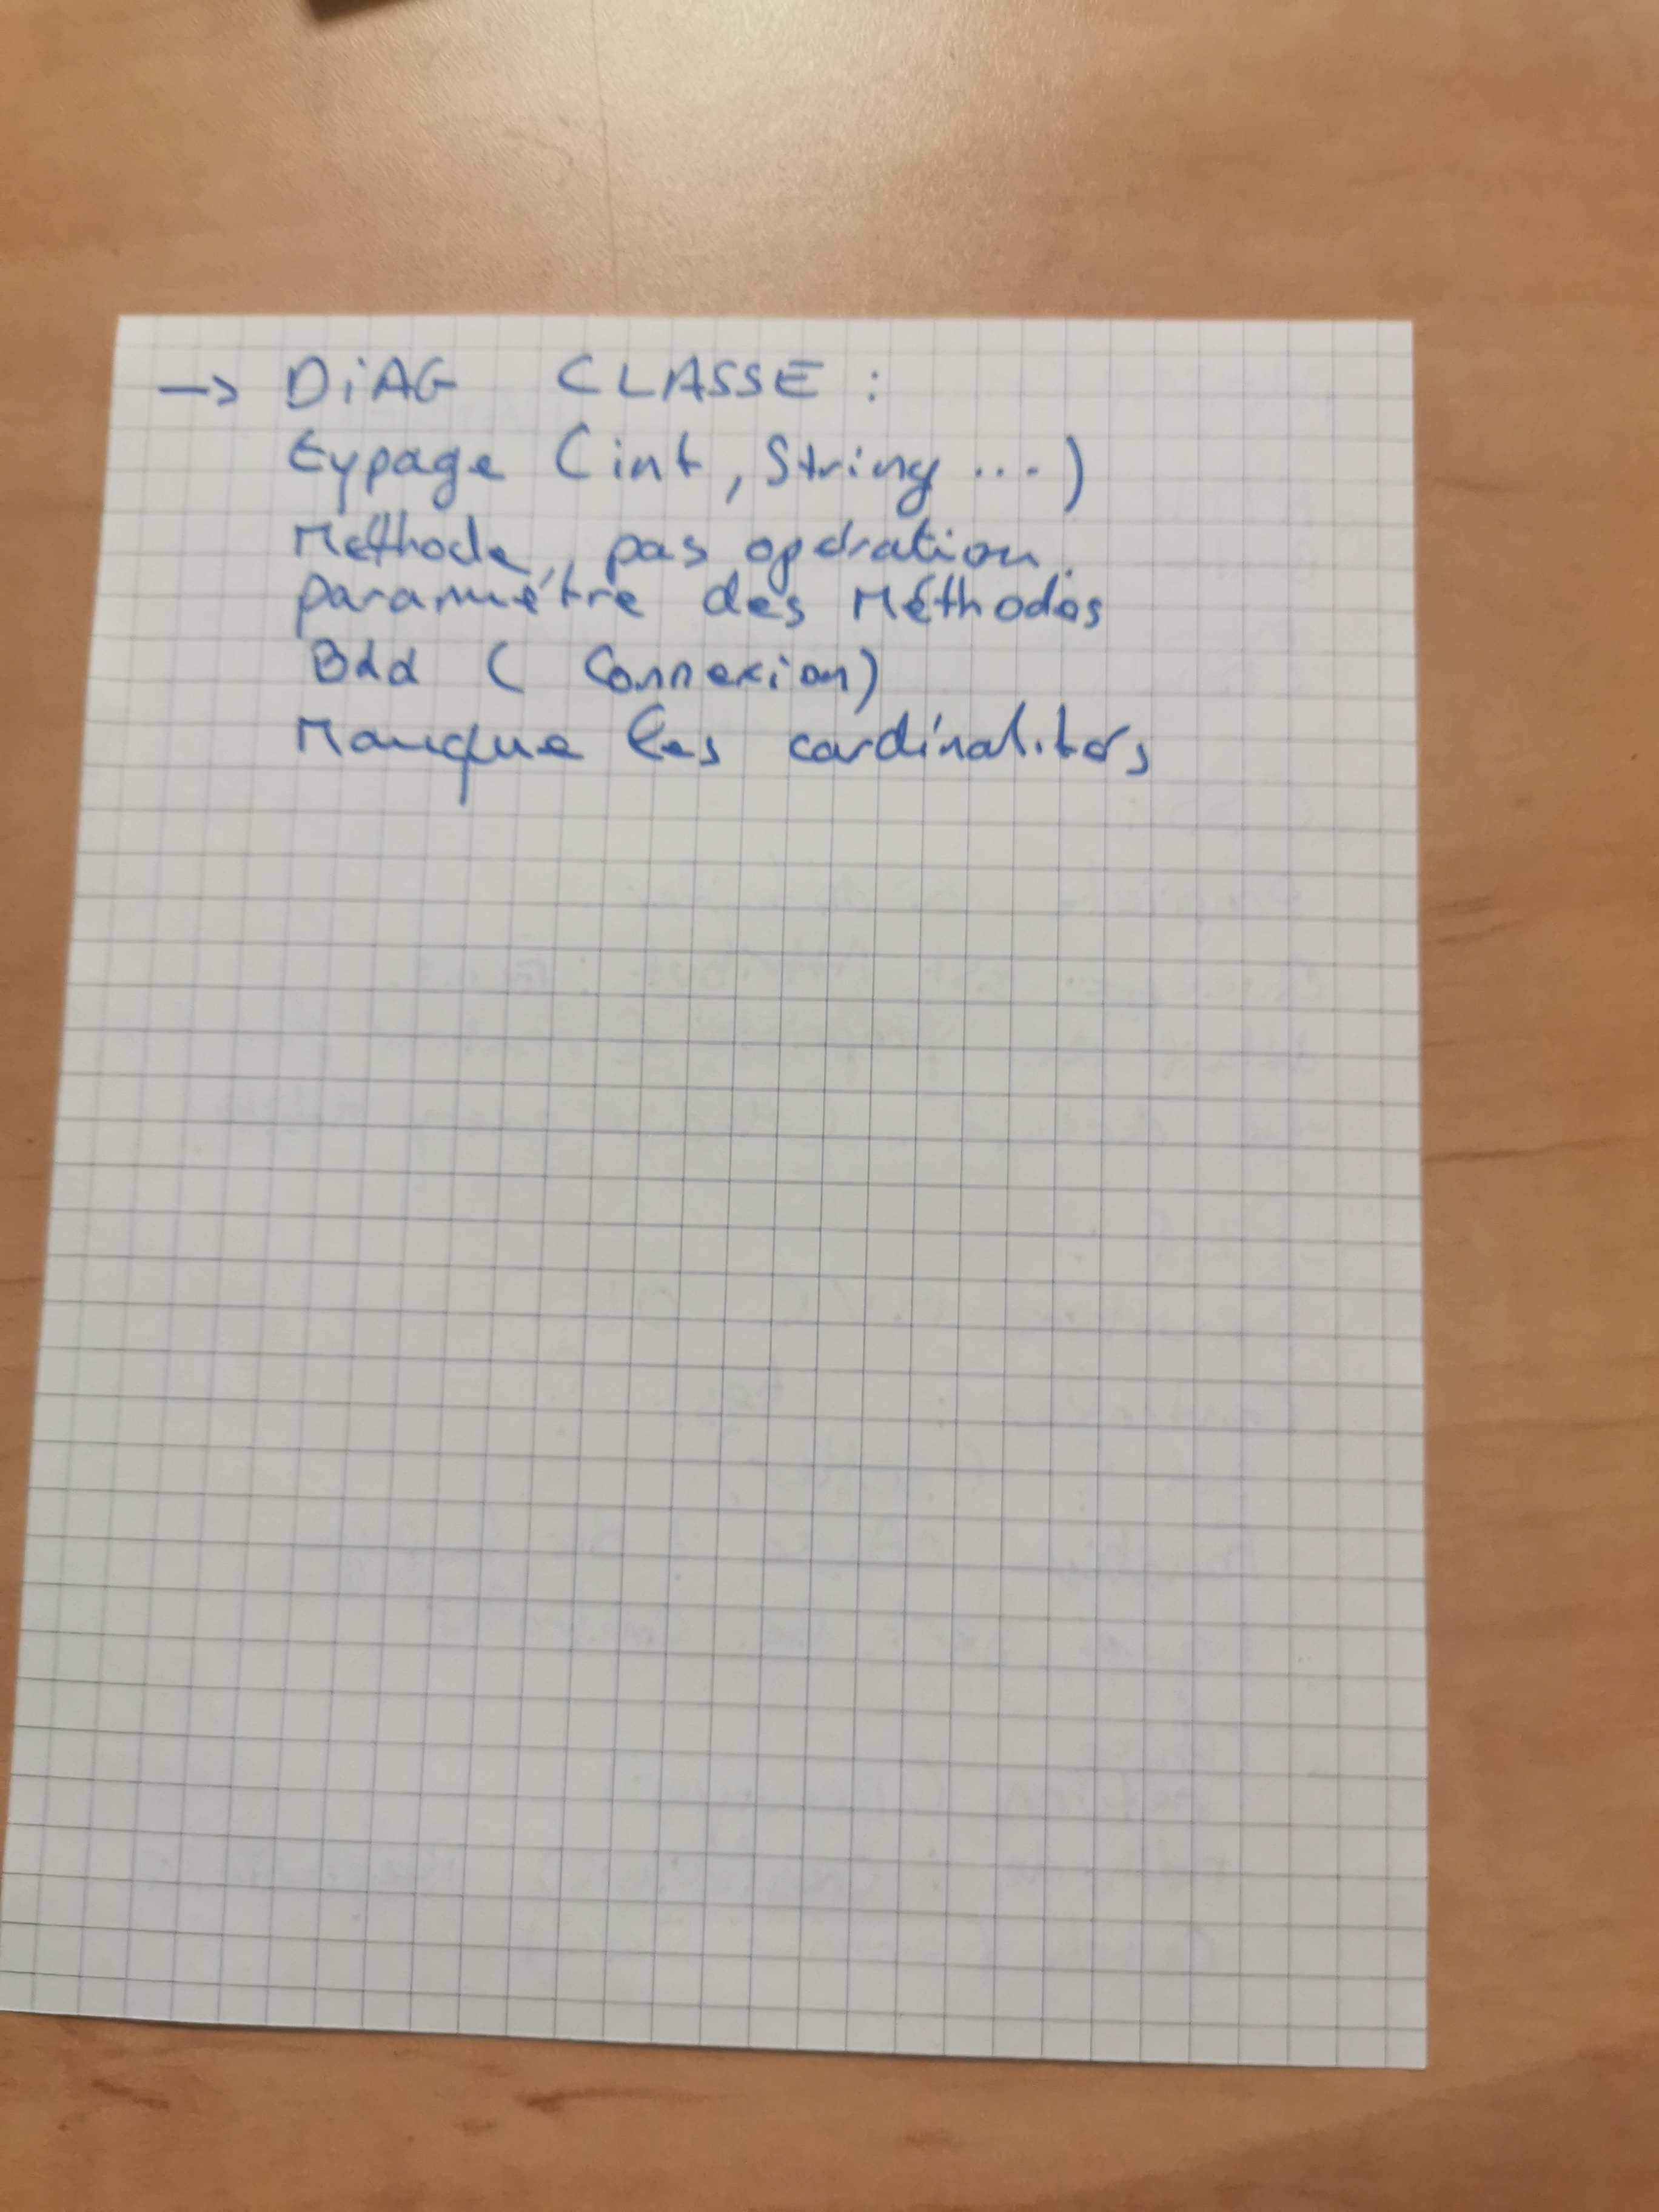 -> DiAG CLASSE :
typage (int, String ...)
Méthode, pas opération.
paramètre des Méthodes
Bdd ( Connexion)
Manque les cardinalités